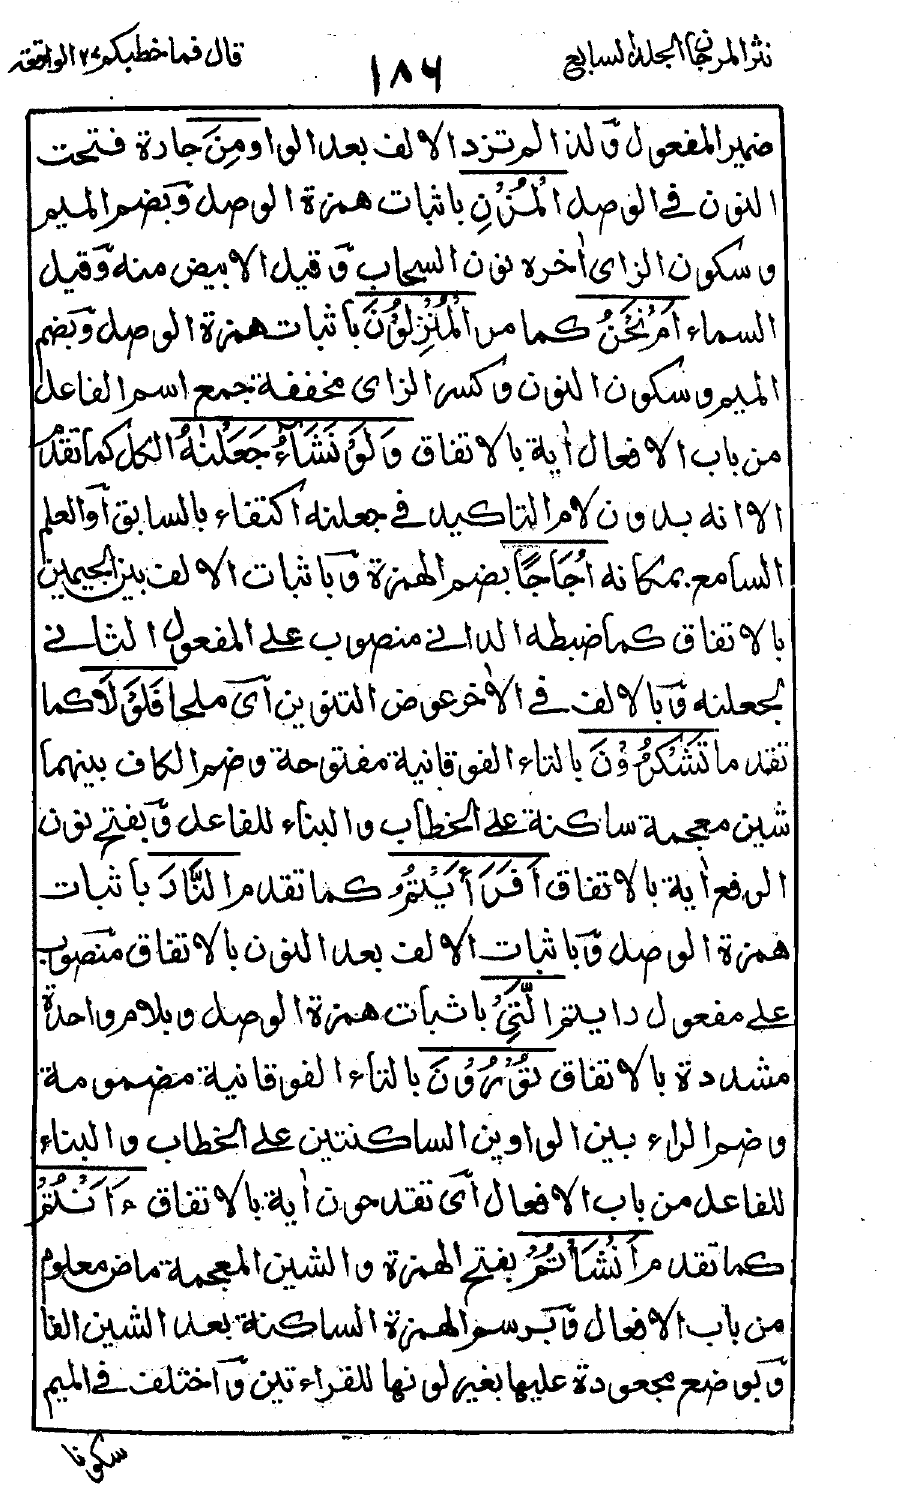 نثر المرجان المجلد السابع
١٨٦
قال فما خطبكم ٢٧ الواقعة
ضمير المفعول وَلذا لم تزد الالف بعد الواو مِنَ جارة فتحت
النون في الوصل الْمُزْنِ باثبات همزة الوصل وَبضم الميم
وسكون الزاى اٰخره نون السحاب وَقيل الابيض منه وَقيل
السماء اَمْ نَحْنُ كما مر الْمُنْزِلُوْنَ باثبات همزة الوصل وَبضم
الميم وسكون النون وكسر الزاى مخففة جمع اسم الفاعل
من باب الافعال اٰية بالاتفاق وَلَوْ نَشَآءُ جَعَلْنٰهُ الكل كما تقدم
الا انه بدون لام التاكيد في جعلنه اكتفاء بالسابق اَو العلم
السامع بمكانه اُجَاجًا بضم الهمزة وَباثبات الالف بين الجيمين
بالاتفاق كما ضبطه الداني منصوب على المفعول الثاني
لجعلنه وَبالالف في الاٰخر عوض التنوين اَى ملحا فَلَوْ لَا كما
تقدم تَشْكُرُوْنَ بالتاء الفوقانية مفتوحة وضم الكاف بينهما
شين معجمة ساكنة على الخطاب والبناء للفاعل وَبفتح نون
الرفع اٰية بالاتفاق اَفَرَاَيْتُمُ كما تقدم النَّارَ باثبات
همزة الوصل وَباثبات الالف بعد النون بالاتفاق منصوب
على مفعول رايتم الَّتِيْ باثبات همزة الوصل وبلام واحدة
مشددة بالاتفاق تُوْرُوْنَ بالتاء الفوقانية مضمومة
وضم الراء بين الواوين الساكنتين على الخطاب والبناء
للفاعل من باب الافعال اَى تقدحون اٰية بالاتفاق ءَاَنْتُمْ
كما تقدم اَنْشَاْتُمْ بفتح الهمزة والشين المعجمة ماض معلوم
من باب الافعال وَبرسم الهمزة الساكنة بعد الشين الفا
وَبوضع مجعودة عليها بغير لونها للقراءتين وَاختلف في الميم
سكونا